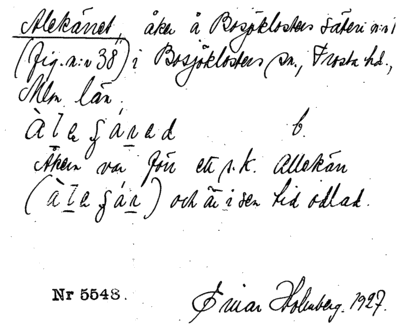 Alekärret, åker å Bosjöklosters säteri n:r 1
(fig. n:r 38) i Bosjöklosters sn., Frosta hd.,
Mlm. län.
À l e g á r e d b.
Åkern var förr ett s.k. allekärr
(à l e g á r) och är i sen tid odlad.
Nr 5548. Einar Holmberg. 1927.